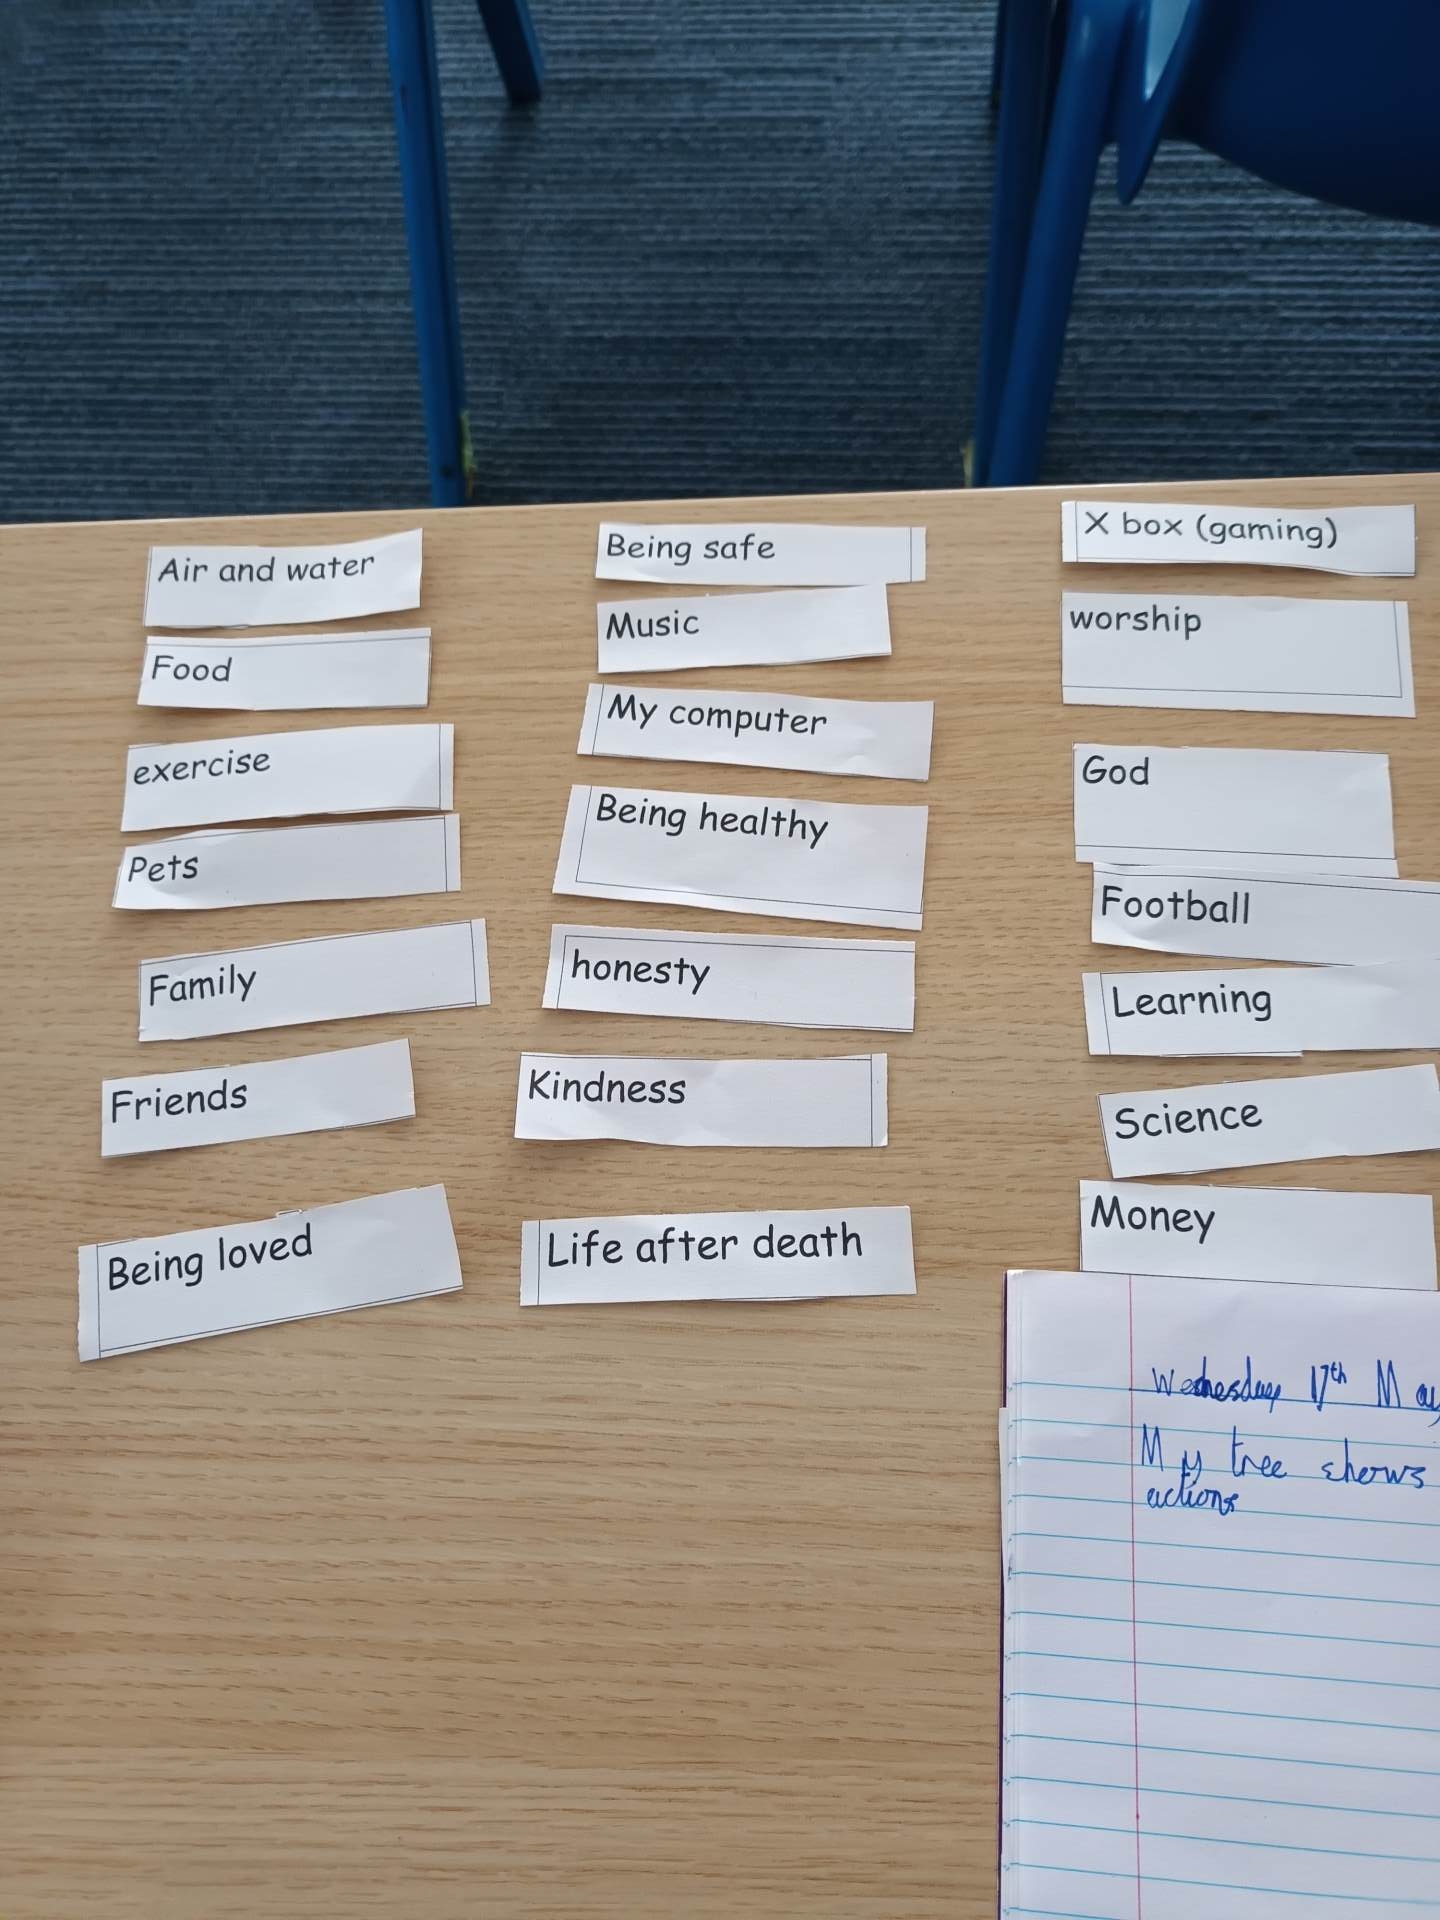 Air and water
Food
exercise
Pets
Family
Friends
Being loved
Being safe
Music
My computer
Being healthy
honesty
Kindness
Life after death
X box (gaming)
worship
God
Football
Learning
Science
Money
Wednesday 17th May
My tree shows
actions